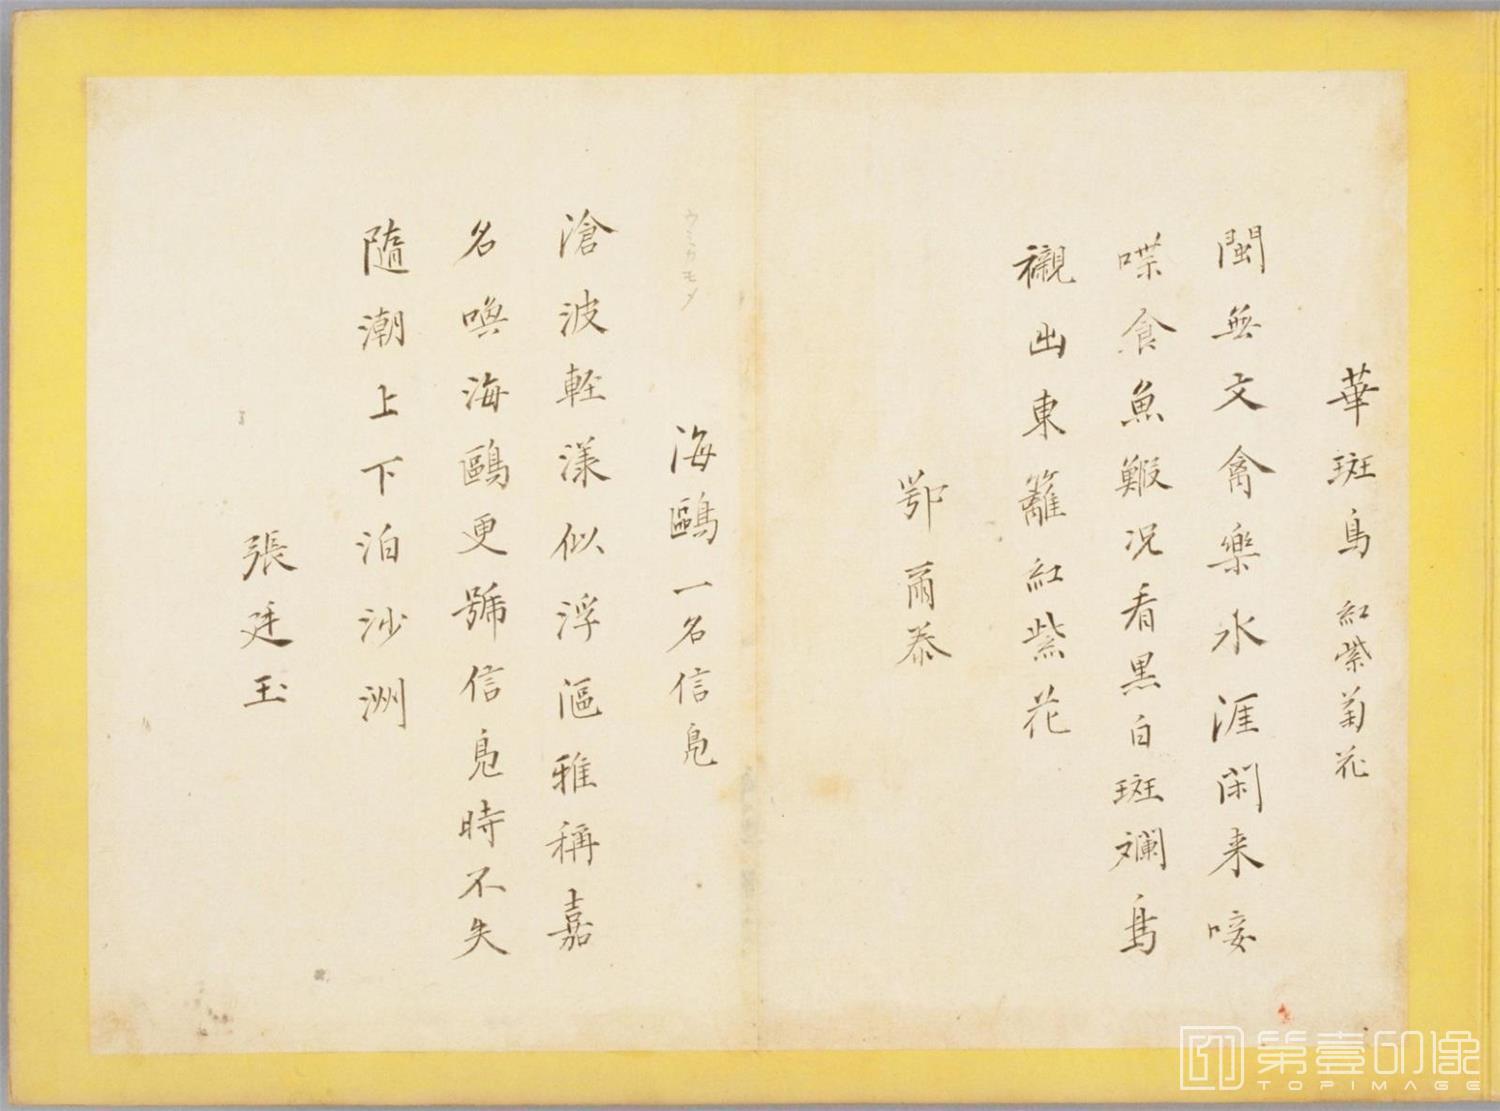 華斑鳥 紅紫菊花
閩無文禽樂水涯閑来唼
喋食魚鰕况看黒白斑斕鳥
襯出東籬紅紫花
鄂爾泰
海鷗一名信鳧
ウミカモメ
滄波輕漾似浮漚雅稱嘉
名喚海鷗更號信鳧時不失
隨潮上下泊沙洲
張廷玉
第壹印像
TOPIMAGE